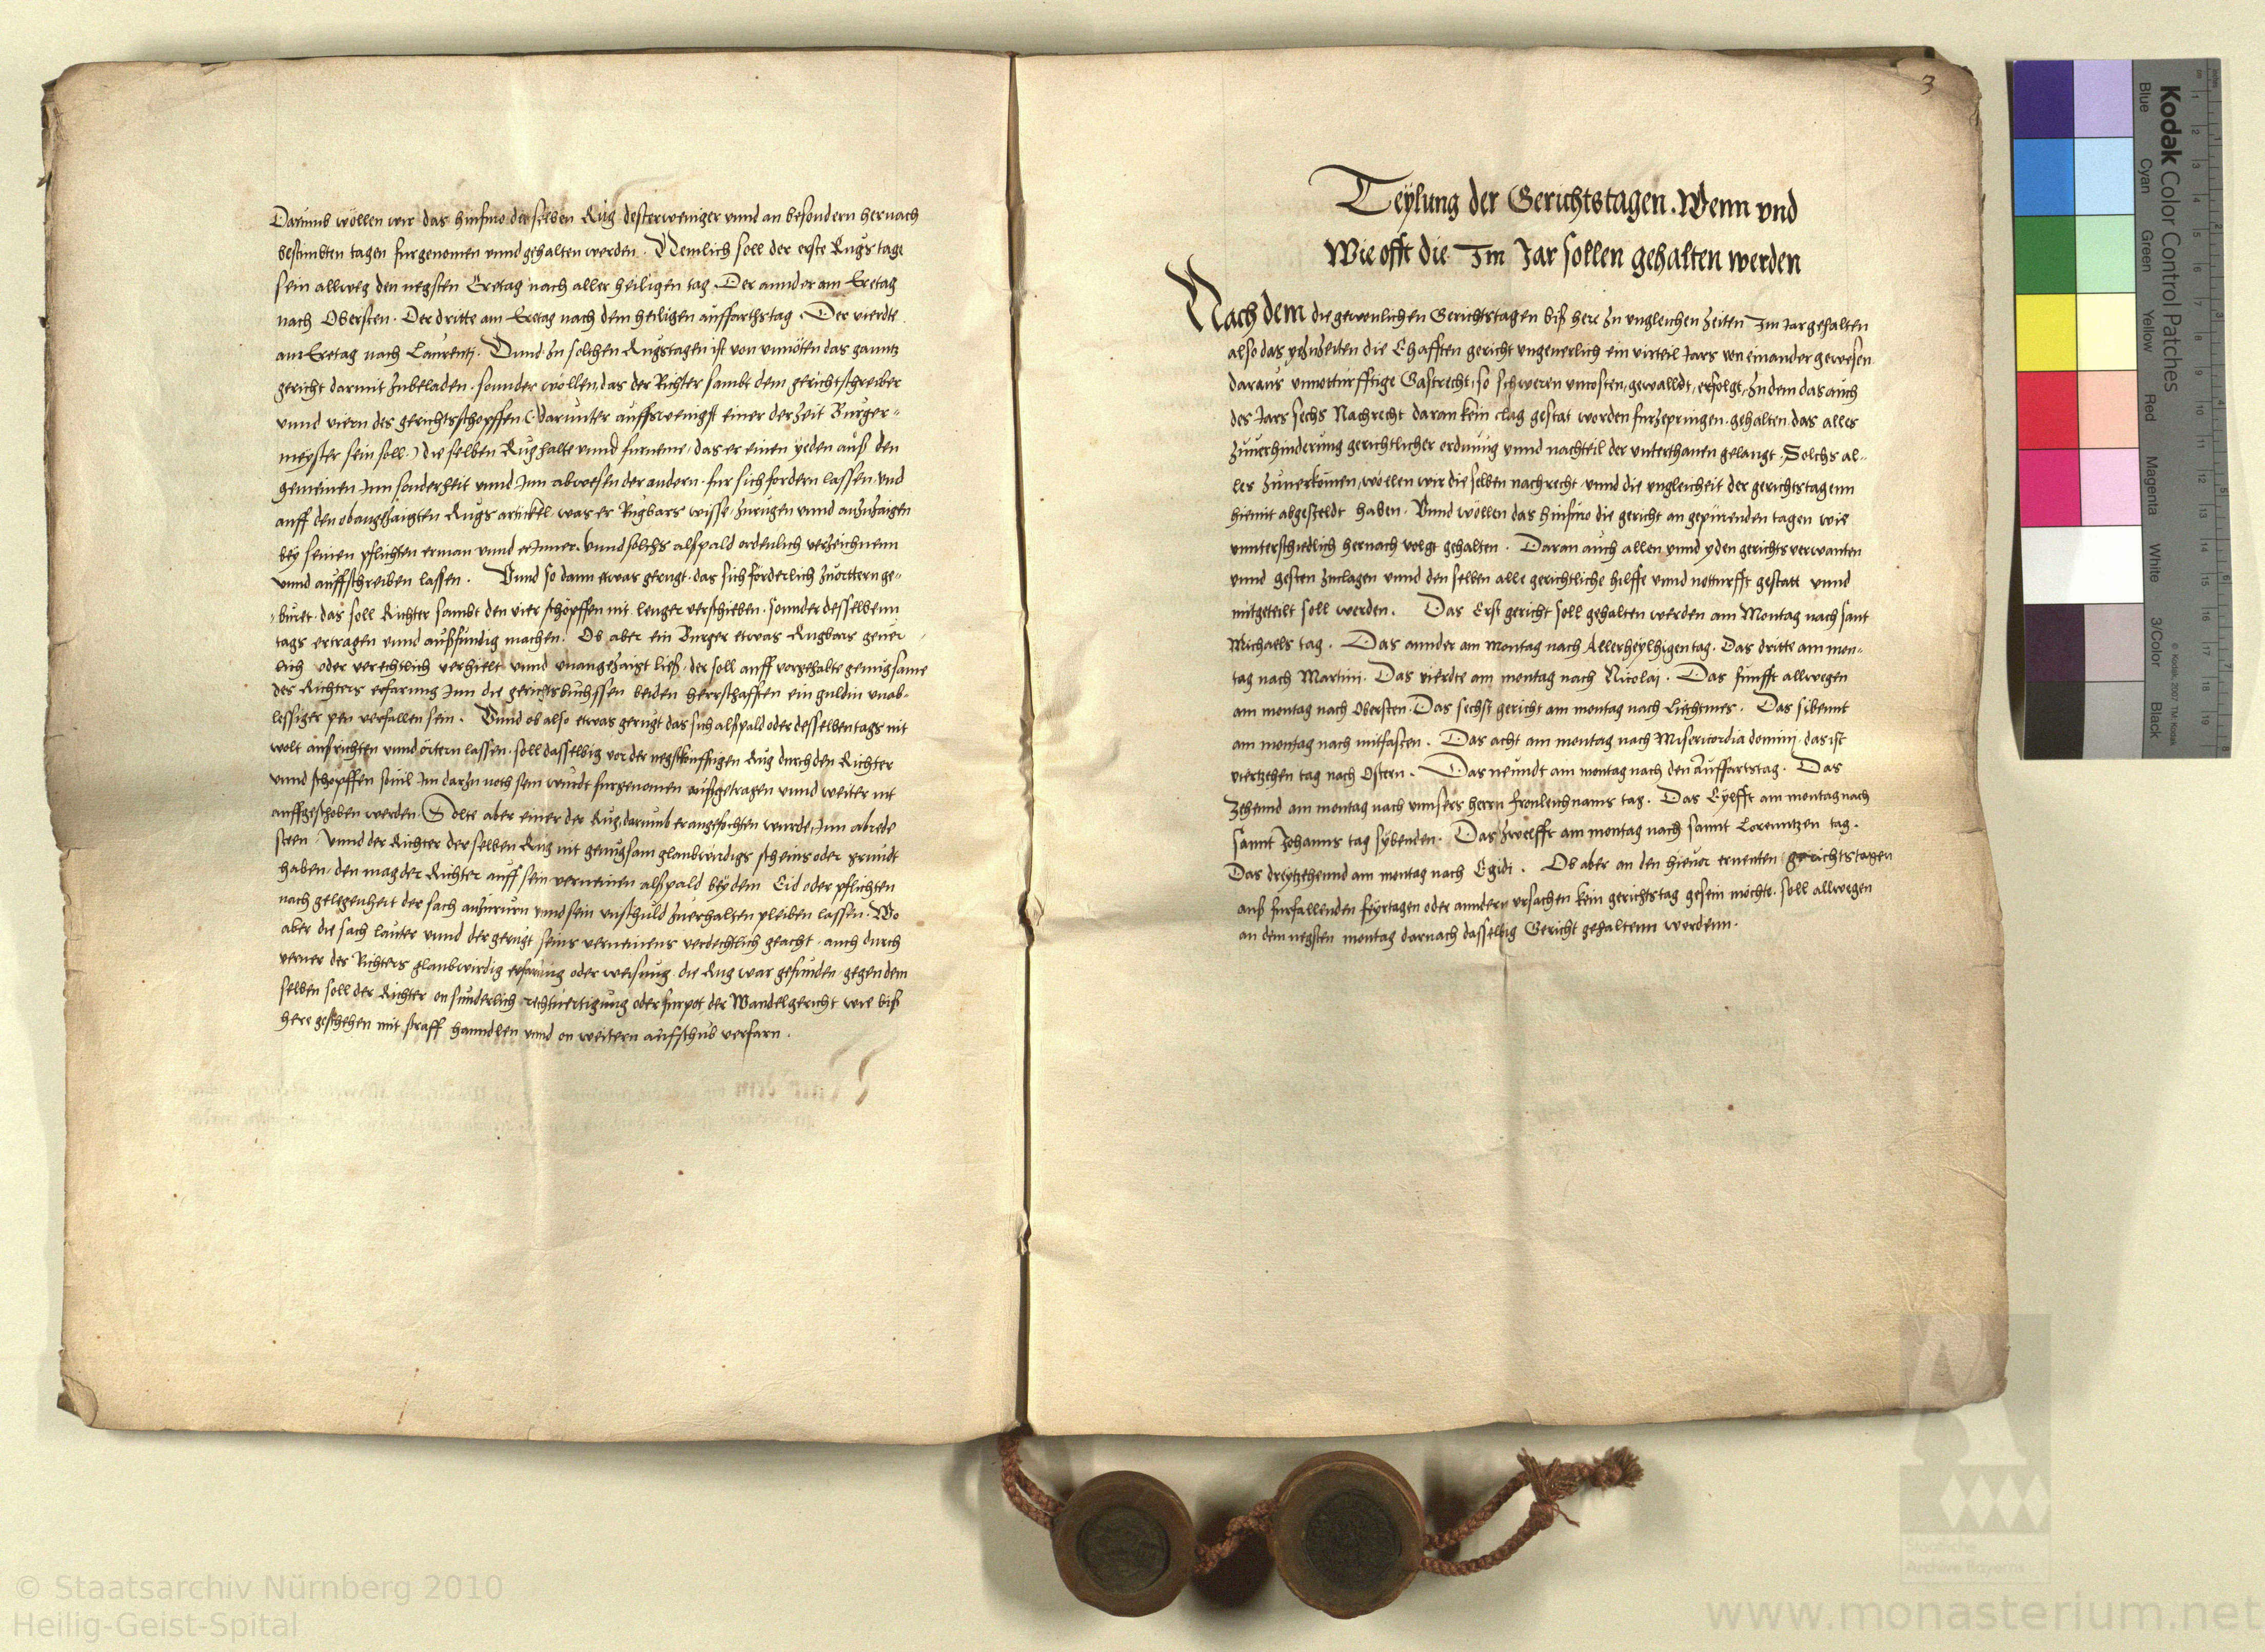 Darumb wöllen wir das hinfuro derselben Rug dester weniger vnnd an besondern hernach
bestimbten tagen furgenomen vnnd gehalten werden. Nemlich soll der erste Rugstage
sein allweg den negsten Eretag nach aller heiligen tag. Der annder am Eretag
nach Obersten. Der dritte am Eretag nach dem heiligen auffarthstag. Der vierdte
am Eretag nach Laurentj. Vnnd zu solchen Rugstagen ist von vnnöten das ganntz
gericht darmit zubeladen. sonnder wöllen, das der Richter sambt dem gerichtschreiber
vnnd viern des gerichtsschopffen (darunter auffs wenigst einer der zeit Burger-
meyster sein soll.) die selben Rug halte vnnd furneme, das er einen yeden auß den
gemeinen Inn sonderheit vnnd Inn abwesen der andern fur sich fordern lassen, vnd
auff den obangezaigten Rugs artickel, was er Rugbars wisse, zurugen vnnd anzuzaigen
bey seinen pflichten erman vnnd erinner. Vnnd solchs alspald ordenlich verzeichnenn
vnnd auffschreiben lassen. Vnnd so dann etwas gerugt. das sich förderlich zuörttern ge-
buret. das soll Richter sambt den vier schöpffen nit lenger verschieben. sonnder desselbenn
tags ertragen vnnd außfundig machen. Ob aber ein Burger etwas Rugbars geuer
lich oder verechtlich verhielt vnnd vnangezaigt ließ, der soll auff vorgehalte genugsame
des Richters erfarung Inn die gerichtsbuchssen beiden herrschafften ein guldin vnab-
lessiger pen verfallen sein. Vnnd ob also etwas gerugt das sich alspald oder desselben tags nit
wolt außrichten vnnd örtern lassen. soll dasselbig vor der negstkunfftigen Rug durch den Richter
vnnd schopffen souil Im darzu noth sein wurdt furgenomen außgetragen vnnd weiter nit
auffgeschoben werden. Solte aber einer der Rug, darumb er angefochten wurde, Inn abrede
steen, Vnnd der Richter derselben Rug nit genugsam glaubwirdigs scheins oder grundt
haben, den mag der Richter auff sein verneinen alspald bey dem Eid oder pflichten
nach gelegenheit der sach anzururn vnnd sein vnschuld zuerhalten pleiben lassen. Wo
aber die sach lauter vnnd der gerugt seins verneinens verdechtlich geacht. auch durch
verner des Richters glaubwirdig erfarung oder weisung die Rug war gefunden gegen dem
selben soll der Richter on sunderlich rechtuertigung oder furpot der Wandelgericht wie biß
here geschehen mit straff hanndlen vnnd on weitern aufschub verfarn.
3
Teylung der Gerichtstagen. Wenn vnd
Wie offt die Im Jar sollen gehalten werden
Nach dem die gewonlichen Gerichtstagen biß here zu vngleichen zeiten Im Jar gehalten
also das zu zeiten die Ehafften gericht vngeuerlich ein virteil Jars von einander gewesen
daraus vnnotturfftige Gastrecht, so schweren vncosten, gewalldt, erfolgt, zu dem das auch
des Jars sechs Nachrecht daran kein clag gestat worden furzepringen, gehalten, das alles
zuuerhinderung gerichtlicher ordnung vnnd nachteil der vnterthanen gelangt. Solchs al-
les zuuerkomen, wöllen wir die selben nachrecht vnnd die vngleicheit der gerichtstagenn
hiemit abgestelldt haben. Vnnd wöllen das hinfuro die gericht an gepurenden tagen wie
vnnterschiedlich hernach volgt gehalten. Daran auch allen vnnd yden gerichtsverwanten
vnnd gesten zuclagen vnnd den selben alle gerichtliche hilffe vnnd notturfft gestatt vnnd
mitgeteilt soll werden. Das Erst gericht soll gehalten werden am Montag nach sant
Michaels tag. Das annder am Montag nach Allerheylhigen tag. Das dritte am mon-
tag nach Martinj. Das vierdte am montag nach Nicolaj. Das funfft allwegen
am montag nach Obersten. Das sechst gericht am montag nach Liechtmes. Das sibennt
am montag nach mitfasten. Das acht am montag nach Misericordia dominj, das ist
viertzehen tag nach Ostern. Das neundt am montag nach den Auffartstag. Das
zehennd am montag nach vnnsers herrn fronleichnams tag. Das Eylfft am montag nach
sannt Johanns tag sybenden. Das zwelfft am montag nach sannt Lorenntzen tag.
Das dreytzehennd am montag nach Egidi. Ob aber an den hieuor ernenten gerichtstagen
auß furfallenden feyrtagen oder anndern vrsachen kein gerichtstag gesein möchte. soll allwegen
an dem negsten montag darnach dasselbig Gericht gehaltenn werdenn.
Kodak Color Control Patches
Blue Cyan Green Yellow Red Magenta White 3/Color Black
© Kodak, 2007 TM: Kodak
© Staatsarchiv Nürnberg 2010
Heilig-Geist-Spital
Staatliche
Archive Bayerns
www.monasterium.net